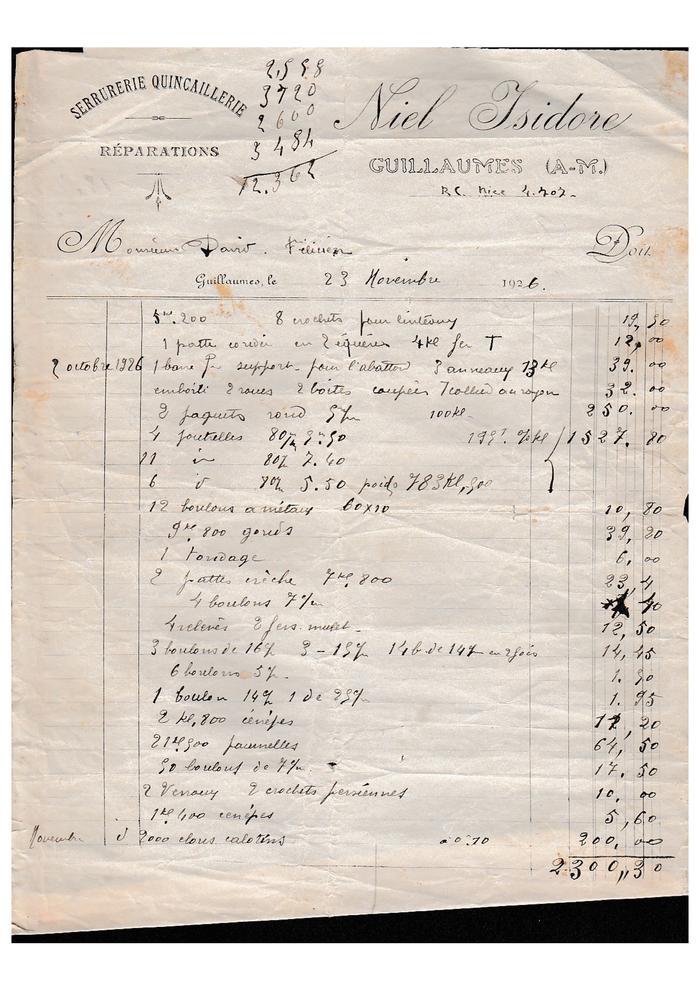 SERRURERIE QUINCAILLERIE
RÉPARATIONS
2,558
3720
2600
3484
12.362
Niel Isidore
GUILLAUMES (A-M.)
R.C. Nice 4.707.
Monsieur David. Félicien Doit
Guillaumes, le 23 Novembre 1926.
5 200 8 crochets pour linteaux 19, 50
1 patte cornière en 2 équerres 4Kg fer T 12, 00
2 octobre 1926 1 barre support pour l'abattoir 3 anneaux 13Kg 39. 00
emboîti 2 roues 2 boîtes coupées 1 collier au rayon 32. 00
2 paquets rond 100kg 250. 00
4 poutrelles 80 1527. 80
11 id 80 7.40
6 d 80 5.50 poids 783Kg,500
12 boulons a métaux 60x10 10, 80
9Kg 800 gonds 39, 20
1 6, 00
2 pattes crèche 7Kg,800 23, 4
4 boulons 7 40
4 relevés 2 fers mulet 12, 50
3 boulons de 16 3 - 15 14 b de 14 en 2 fois 14, 45
6 boulons 1. 50
1 boulon 14 1 de 1. 95
2 Kg,800 20
21Kg,500 paumelles 64, 50
50 boulons de 7 17. 50
2 Verroux 2 crochets persiennes 10. 00
1Kg 400 5, 60
Novembre d 2000 clous calotins à 0.10 200, 00
2300,,30